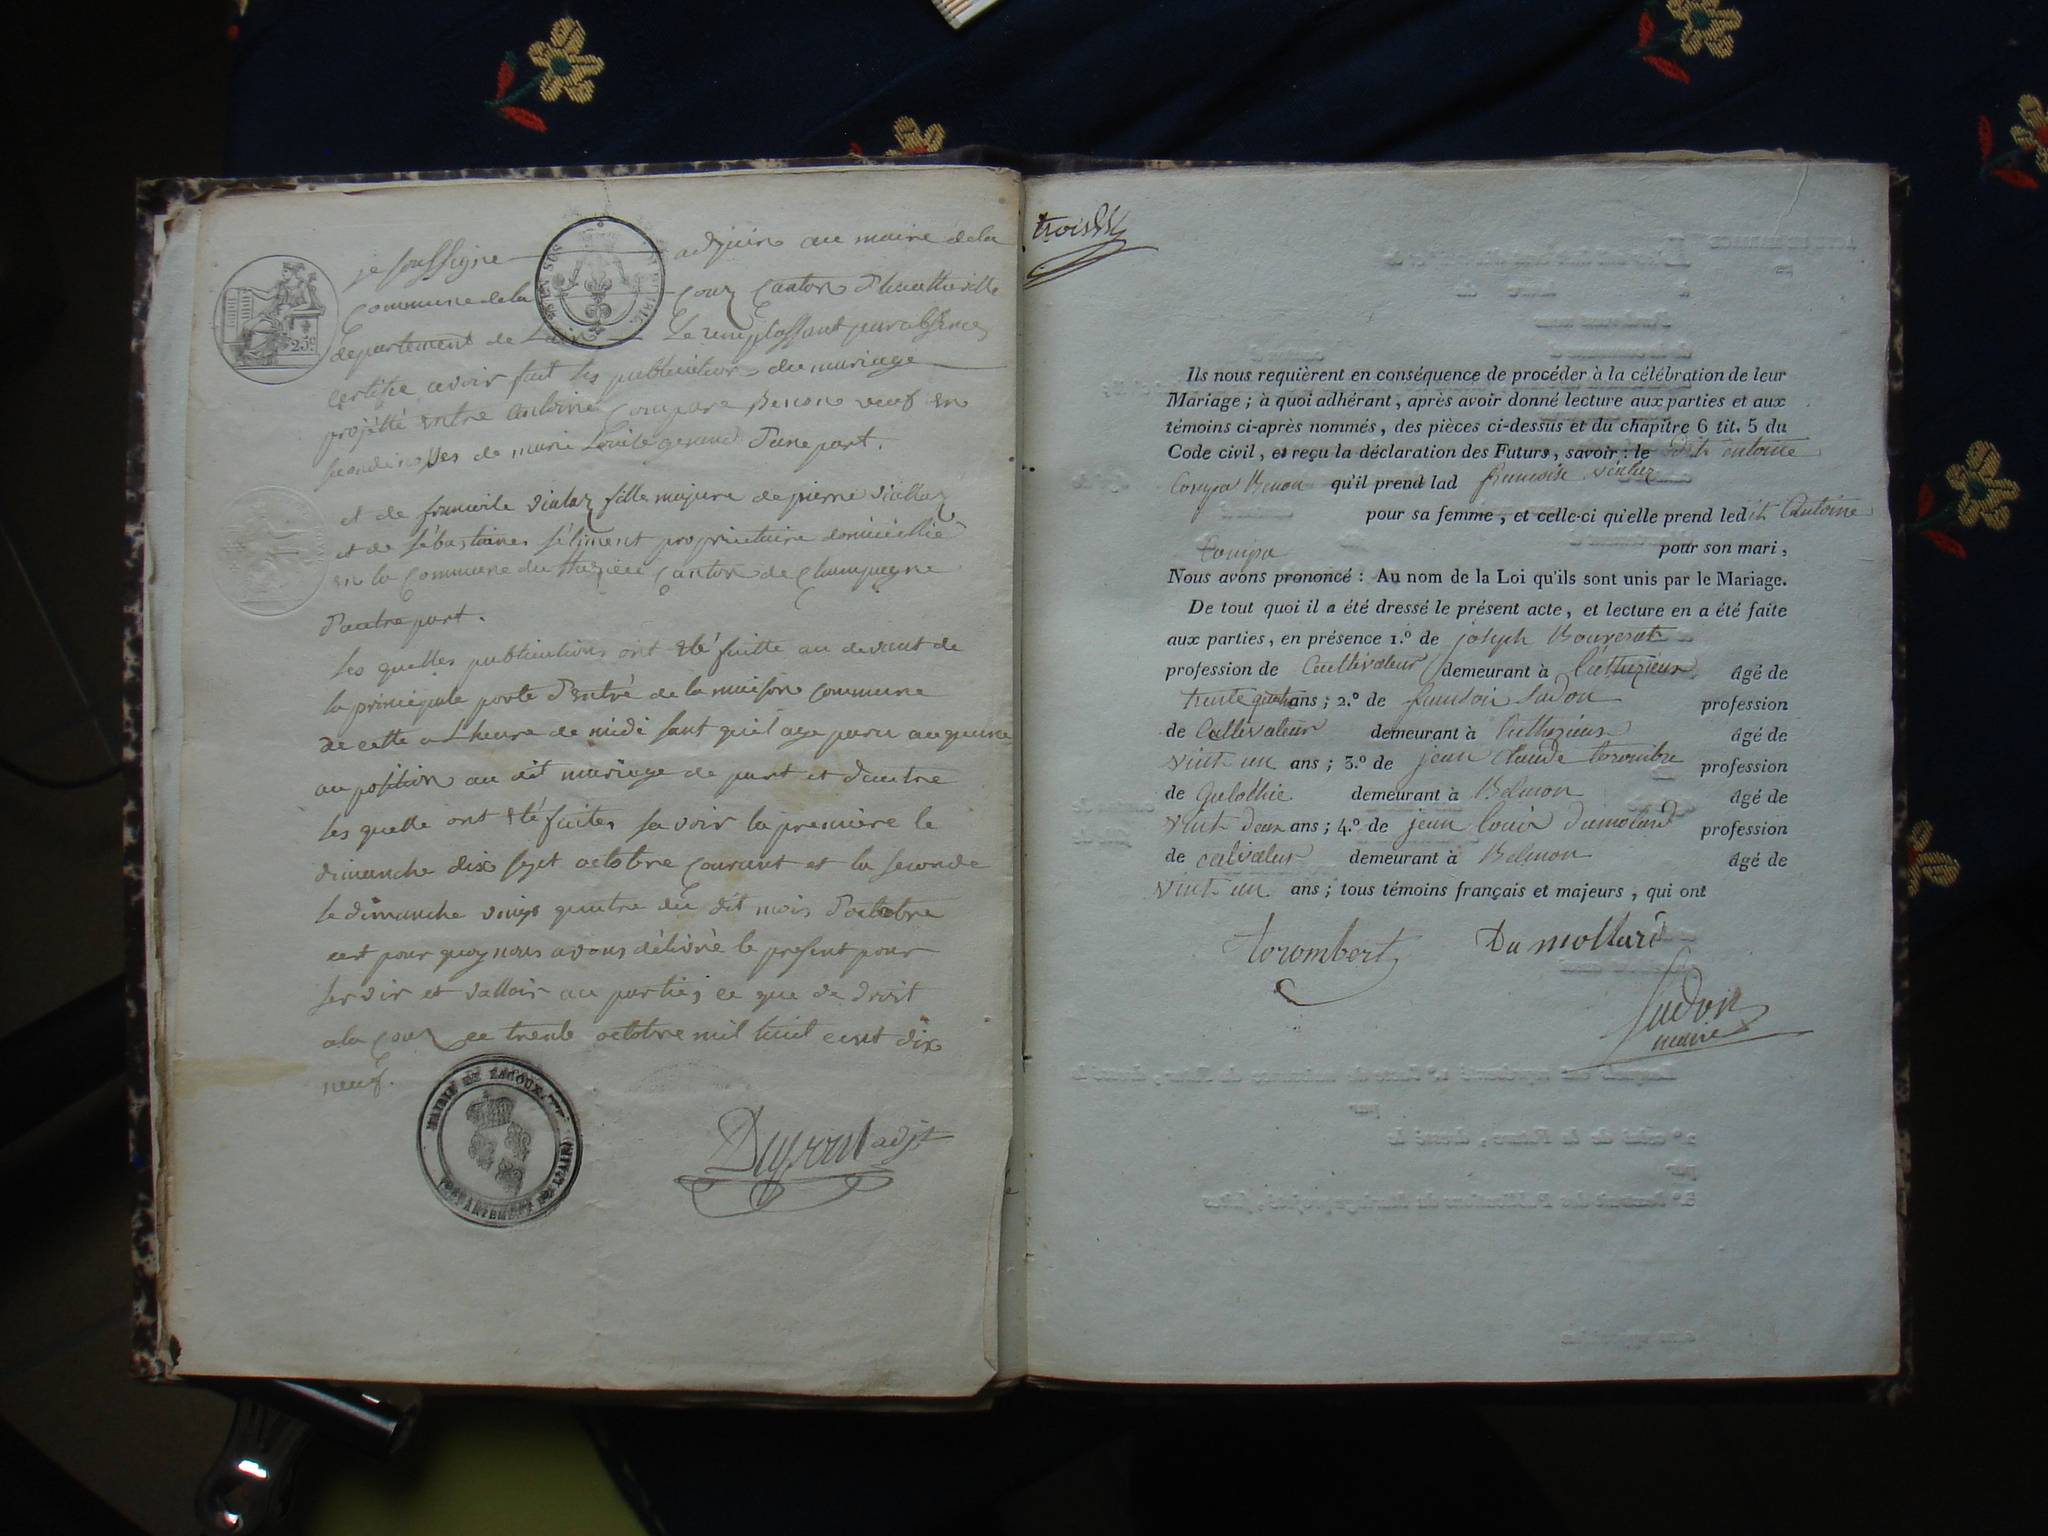 je soussigne adjoin au maire de la
Commune de la Couz Canton D'hautteville
departement de Lain Le remplassant par absence
certifie avoir fait les publications du mariage
projetté entre antoine Compare Benon veuf en
secondes noces de marie Louise gerand D'une part.
et de francoise vialaz fille majure de pierre viallaz
et de sébastienne séliment proprietaire domicilliè
en la Commune du thezieu Canton de Champagne
D'autre part.
les quelles publications ont été faitte au devant de
la principale porte D'entré de la maison commune
de cette a L'heure de midi sant qu'il aye paru auqueune
au position au dit mariage de part et d'autre
les quelle ont été faites savoir la premiere le
dimanche dix sept octobre courant et la seconde
le dimanche vingt quatre du dit mois D'octobre
cest pour quoy nous avons délivré le present pour
servir et valloir au parties ce que de droit
a la Couz ce trente octobre mil huit cent dix
neuf.
25c
MAIRIE DE LACOUX
DEPARTEMENT DE L'AIN
adjt
trois
Ils nous requièrent en conséquence de procéder à la célébration de leur
Mariage ; à quoi adhérant, après avoir donné lecture aux parties et aux
témoins ci-après nommés, des pièces ci-dessus et du chapitre 6 tit. 5 du
Code civil, et reçu la déclaration des Futurs, savoir : le dit antoine
Compa Benon qu'il prend lad francoise vialaz
pour sa femme, et celle-ci qu'elle prend ledit Antoine
Compa pour son mari,
Nous avons prononcé : Au nom de la Loi qu'ils sont unis par le Mariage.
De tout quoi il a été dressé le présent acte, et lecture en a été faite
aux parties, en présence 1.º de joseph Bouverat
profession de Cultivateur demeurant à Luthezieu âgé de
trente quatre ans ; 2.º de Ludon profession
de Cultivateur demeurant à Luthezieu âgé de
vint un ans ; 3.º de jean Claude torombre profession
de demeurant à Belmon âgé de
vint deux ans ; 4.º de jean louis dumolard profession
de cultivateur demeurant à Belmon âgé de
vint un ans ; tous témoins français et majeurs, qui ont
torombert Du mollard
Ludon
maire